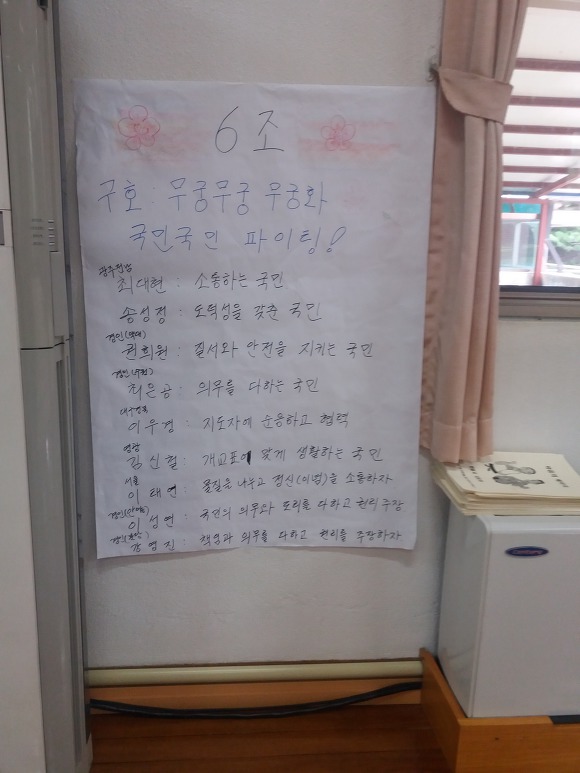 6조
구호 : 무궁무궁 무궁화
국민국민 파이팅!
광주전남
최대현 : 소통하는 국민
송성정 : 도덕성을 갖춘 국민
경인
권희원 : 질서와 안전을 지키는 국민
경인
최은공 : 의무를 다하는 국민
대구경북
이우경 : 지도자에 순응하고 협력
영광
김신철 : 개교표에 맞게 생활하는 국민
서울
이태연 : 물질을 나누고 정신(이념)을 소통하자
이성연 : 국민의 의무와 도리를 다하고 권리주장
강명진 : 책임과 의무를 다하고 권리를 주장하자